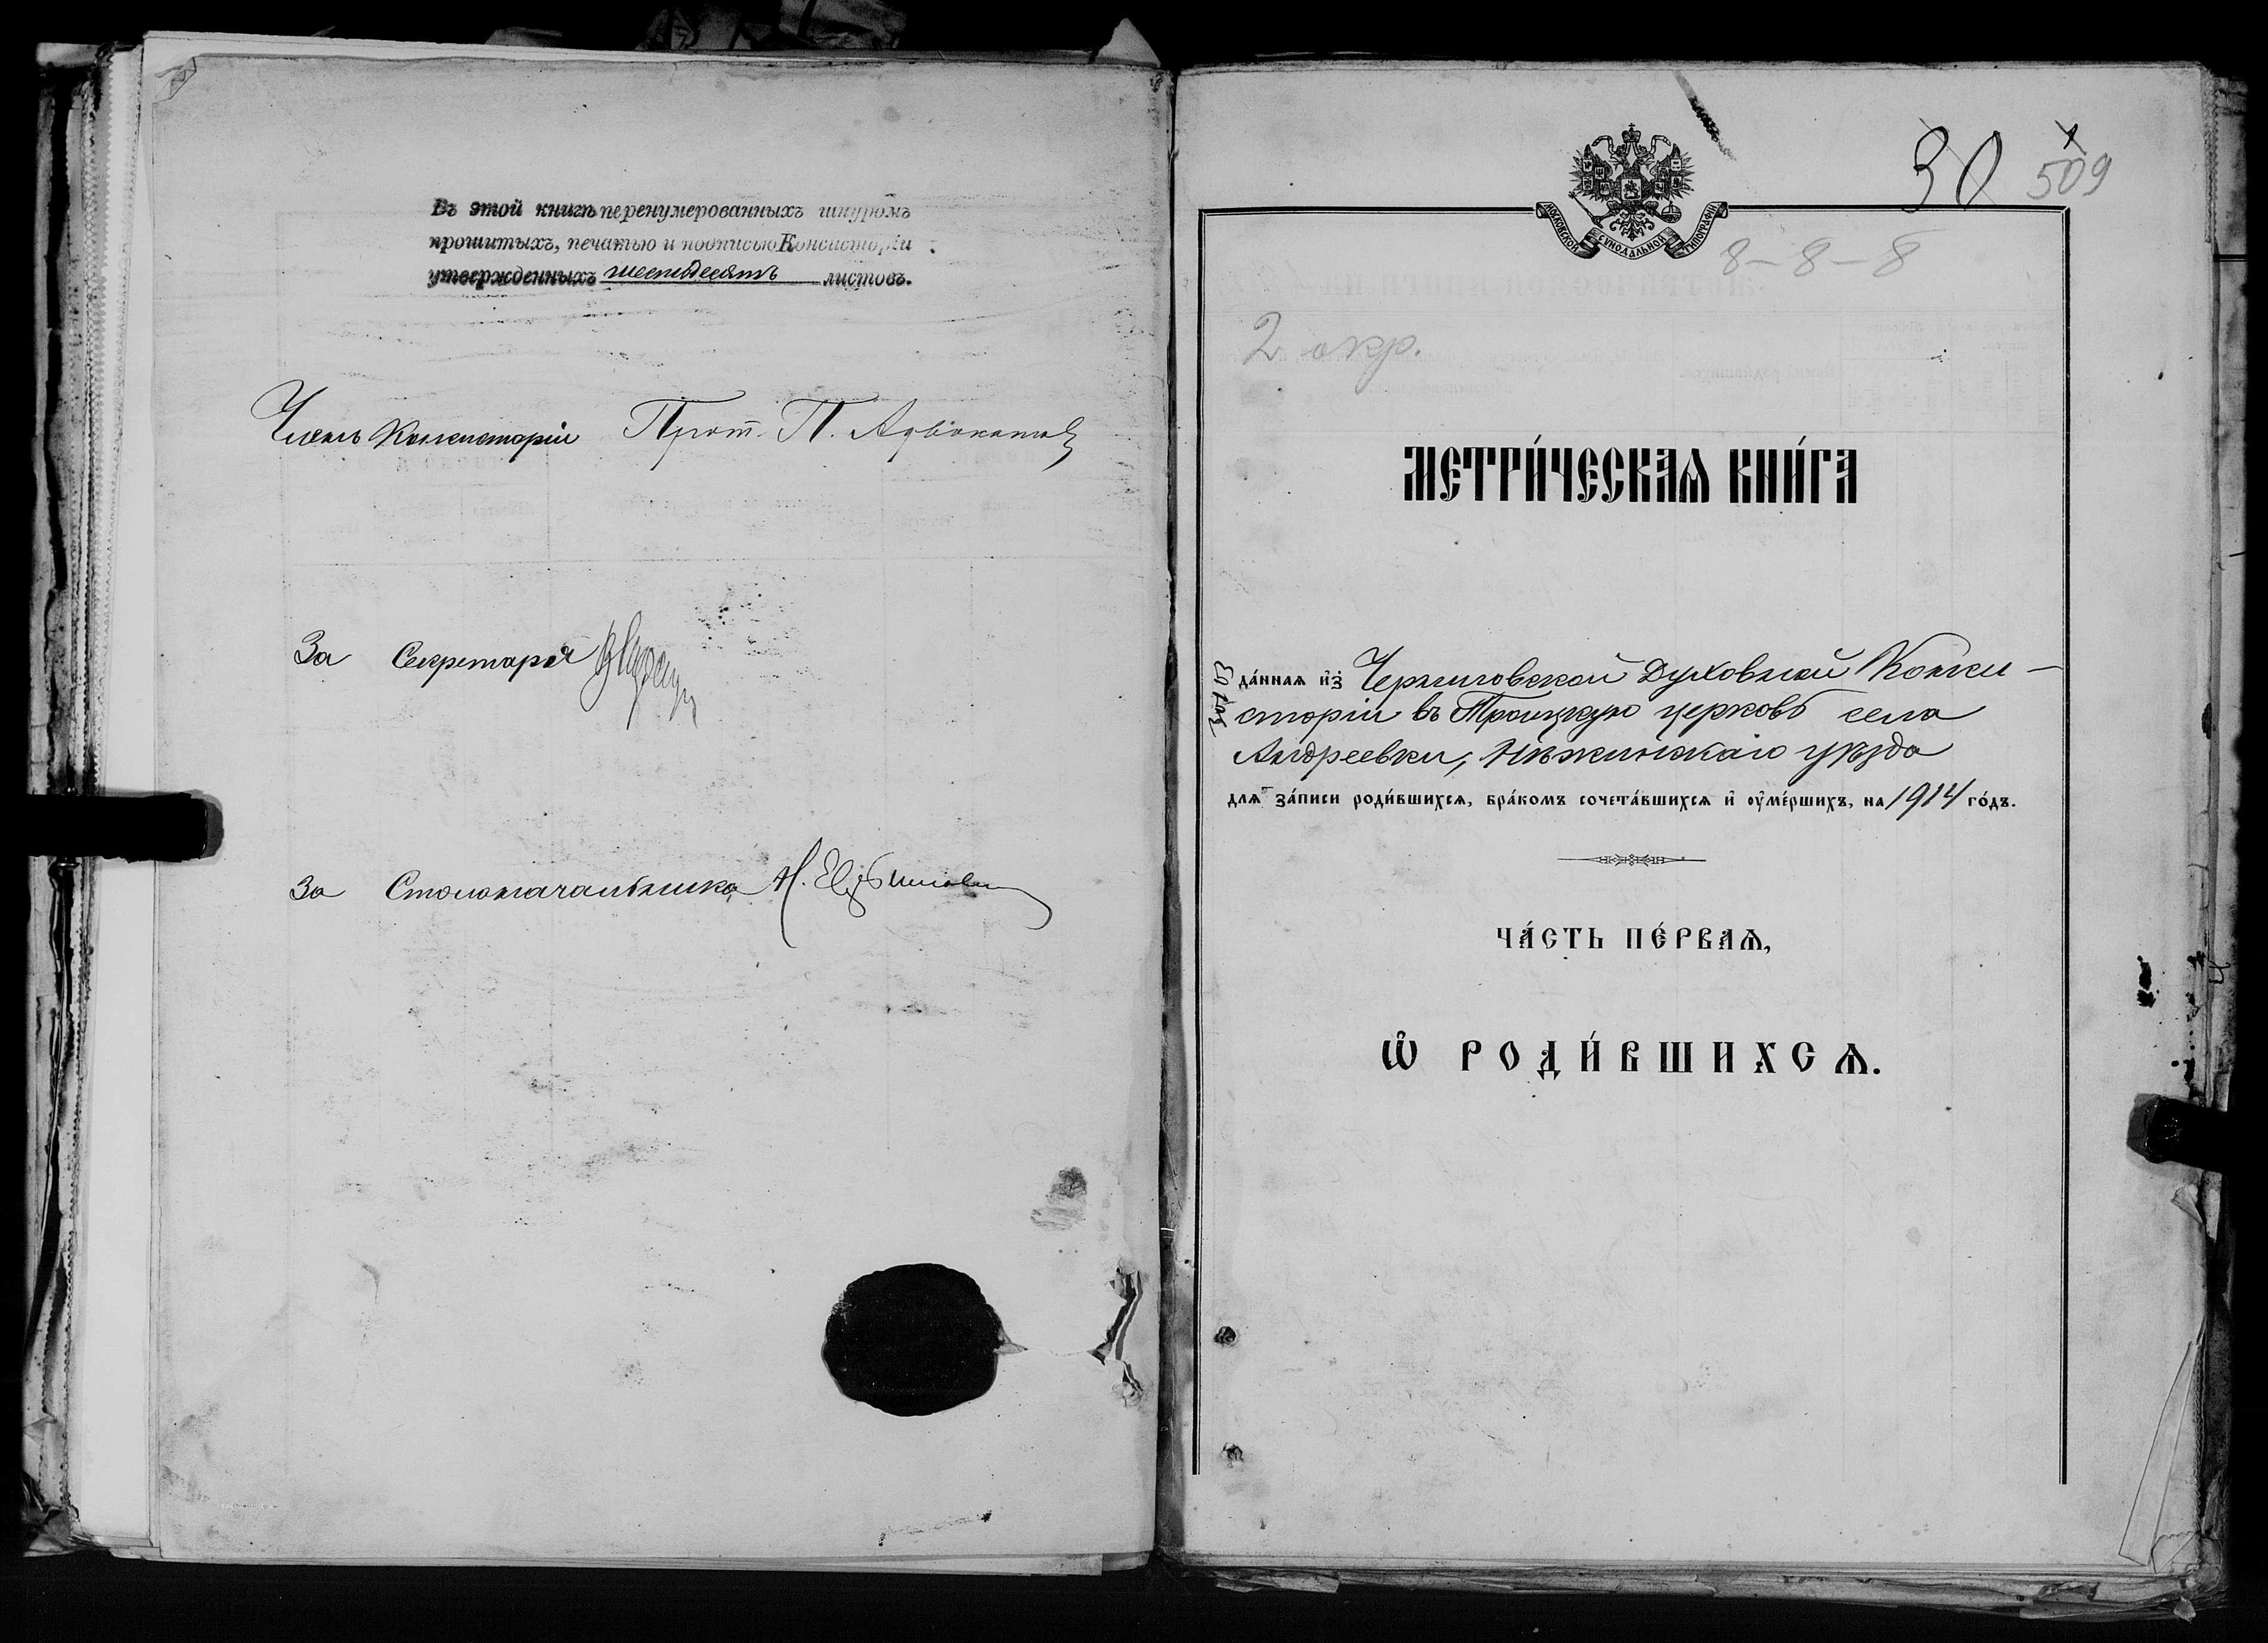 Въ этой книгѣ перенумерованныхъ шнуромъ
прошитыхъ, печатью и подписью Консисторіи
утвержденныхъ шестьдесятъ листовъ.
Членъ Консисторіи Прот. П. Адвокатовъ
За Секретаря
За Столоначальника Н.
30 509
МОСКОВСКОЙ СѴНОДАЛЬНОЙ ТИПОГРАФІИ
8-8-8
2 окр.
МЕТРИ́ЧЕСКАѦ КНИ́ГА
да́ннаѧ и҆з̾ Черниговской Духовной Конси-
сторіи въ Троицкую церковь села
Андреевки, Нѣжинскаго уѣзда
длѧ за́писи роди́вшихсѧ, бра́комъ сочета́вшихсѧ и҆ ѹ҆ме́ршихъ, на 1914 го́дъ.
ЧА́СТЬ ПЕ́РВАѦ,
Ѽ РОДИ́ВШИХСѦ.